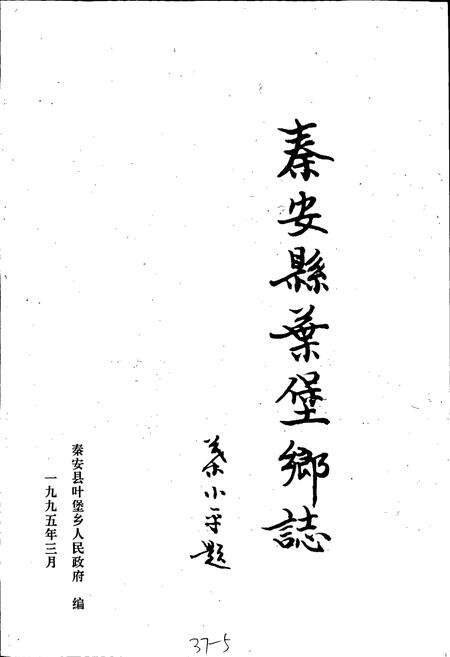 秦安縣葉堡鄉誌
小平題
秦安县叶堡乡人民政府 编
一九九五年三月
37-5